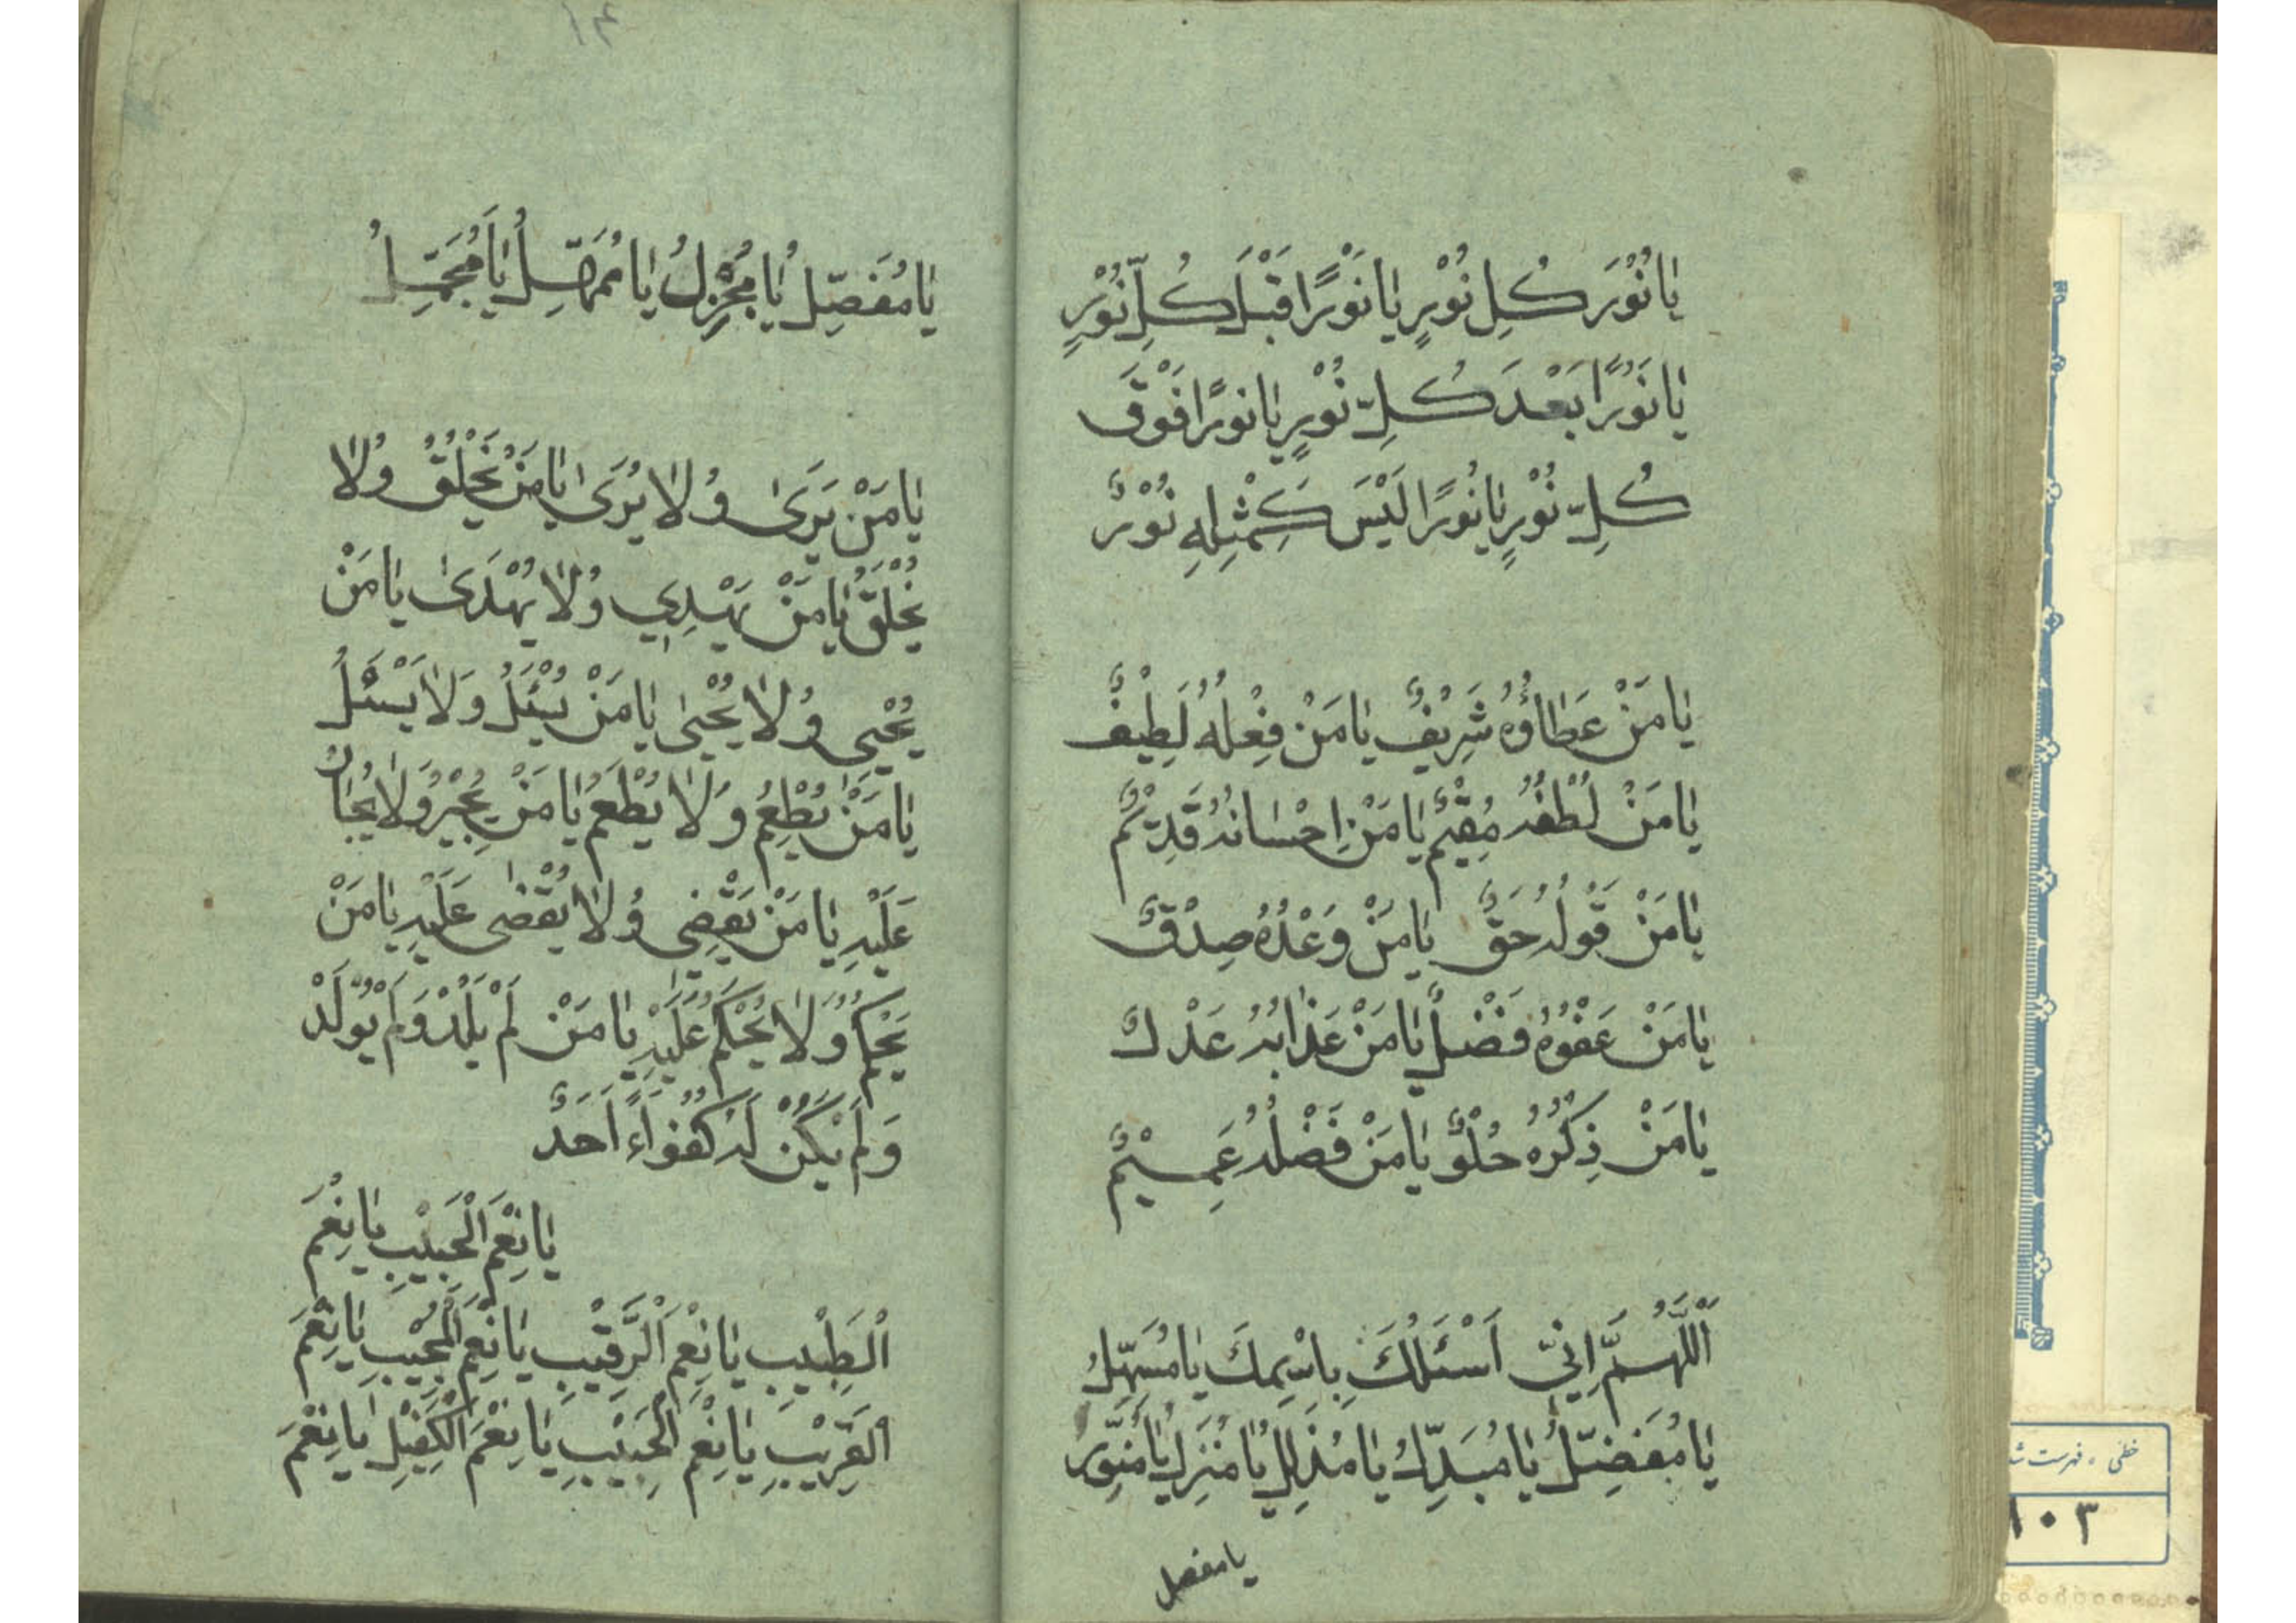 يَا نُوْرَ كُلِّ نُوْرٍ يَا نُوْرًا قَبْلَ كُلِّ نُوْرٍ
يَا نُوْرًا بَعْدَ كُلِّ نُوْرٍ يَا نُورًا فَوْقَ
كُلِّ نُوْرٍ يَا نُورًا لَيْسَ كَمِثْلِهِ نُوْرٌ
يَا مَنْ عَطَاؤُهُ شَرِيْفٌ يَا مَنْ فِعْلُهُ لَطِيْفٌ
يَا مَنْ لُطْفُهُ مُقِيْمٌ يَا مَنْ اِحْسَانُهُ قَدِيْمٌ
يَا مَنْ قَوْلُهُ حَقٌّ يَا مَنْ وَعْدُهُ صِدْقٌ
يَا مَنْ عَفْوُهُ فَضْلٌ يَا مَنْ عَذَابُهُ عَدْلٌ
يَا مَنْ ذِكْرُهُ حُلْوٌ يَا مَنْ فَضْلُهُ عَمِيْمٌ
اَللّٰهُمَّ اِنِّي اَسْئَلُكَ بِاسْمِكَ يَا مُسَهِّلُ
يَا مُفَضِّلُ يَا مُبَدِّلُ يَا مُذَلِّلُ يَا مُنَزِّلُ يَا مُنَوِّرُ
يا مفصل
١٤
يَا مُفَصِّلُ يَا مُجْزِلُ يَا مُمَهِّلُ يَا مُجَمِّلُ
يَا مَنْ يَرَىٰ وَلَا يُرَىٰ يَا مَنْ يَخْلُقُ وَلَا
يُخْلَقُ يَا مَنْ يَهْدِي وَلَا يُهْدَىٰ يَا مَنْ
يُحْيِي وَلَا يُحْيىٰ يَا مَنْ يُسْئَلُ وَلَا يَسْئَلُ
يَا مَنْ يُطْعِمُ وَلَا يُطْعَمُ يَا مَنْ يُجِيْرُ وَلَا يُجَارُ
عَلَيْهِ يَا مَنْ يَقْضِي وَلَا يُقْضىٰ عَلَيْهِ يَا مَنْ
يَحْكُمُ وَلَا يُحْكَمُ عَلَيْهِ يَا مَنْ لَمْ يَلِدْ وَلَمْ يُوْلَدْ
وَلَمْ يَكُنْ لَهُ كُفُوَاءً اَحَدٌ
يَا نِعْمَ الْحَبِيْبِ يَا نِعْمَ
اْلطَبِيْبِ يَا نِعْمَ اَلْرَّقِيْبِ يَا نِعْمَ الْمُجِيْبِ يَا نِعْمَ
اْلقَرِيْبِ يَا نِعْمَ الْحَسِيْبِ يَا نِعْمَ الْكَفِيْلِ يَا نِعْمَ
خطی ، فهرست
١٠٣